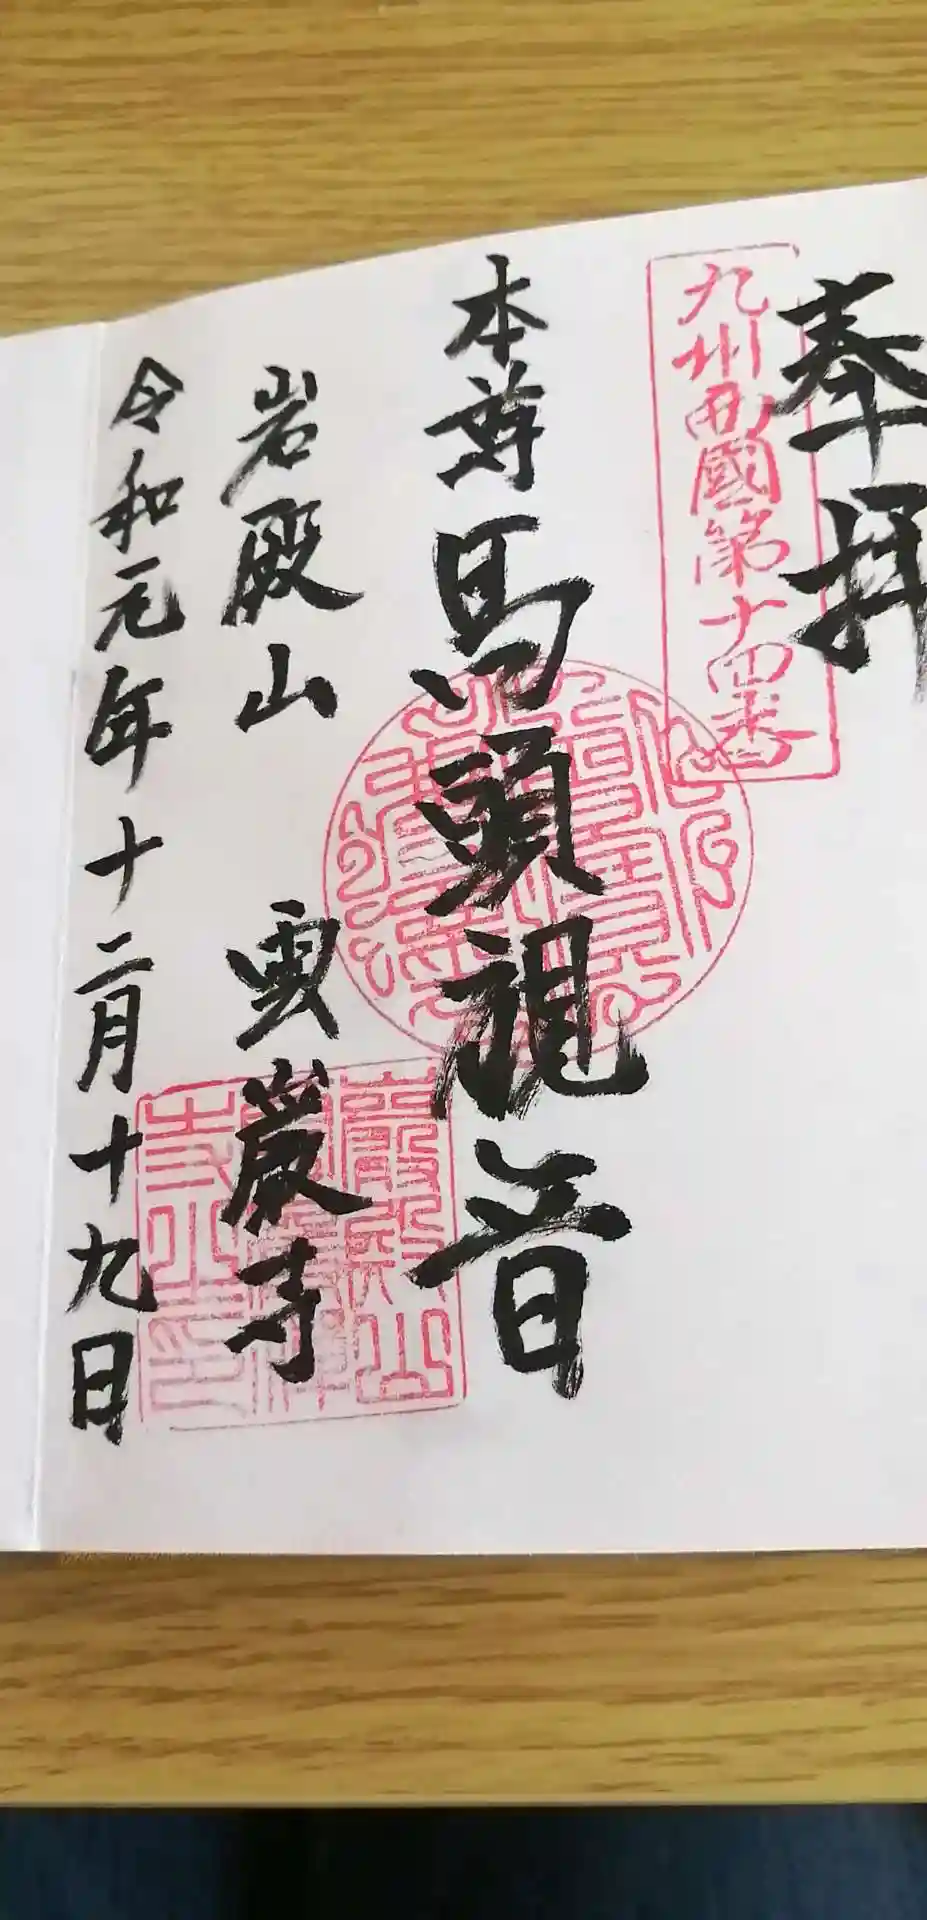 奉拝
九州西國第十四番
本尊 馬頭観音
岩殿山 雲巌寺
令和元年十二月十九日